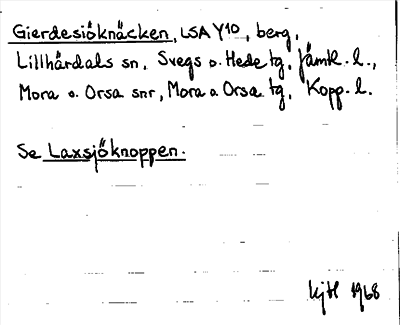 Gierdesiöknäcken, LSA Y10, berg,
Lillhärdals sn, Svegs o. Hede tg, Jämtl. l.,
Mora o. Orsa snr, Mora o Orsa tg, Kopp. l.
Se Laxsjöknoppen.
kjtl 1968